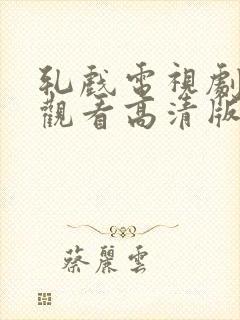 乳戲電視劇
觀看高清版
蔡麗雲